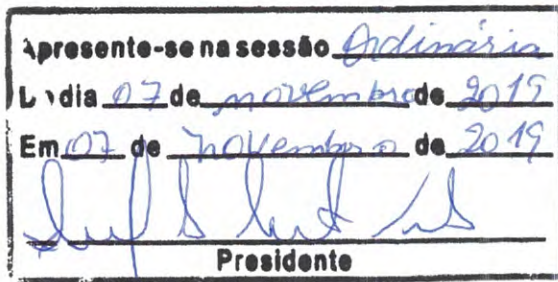 Apresente-se na sessão Ordinária
Do dia 07 de novembro de 2019
Em 07 de novembro de 2019
Presidente